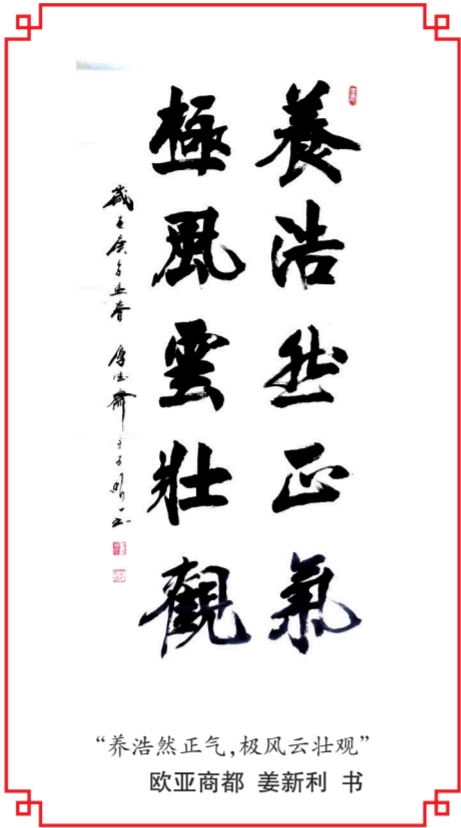 養浩然正氣
極風雲壯觀
歲在庚子立春
“养浩然正气,极风云壮观”
欧亚商都 姜新利 书